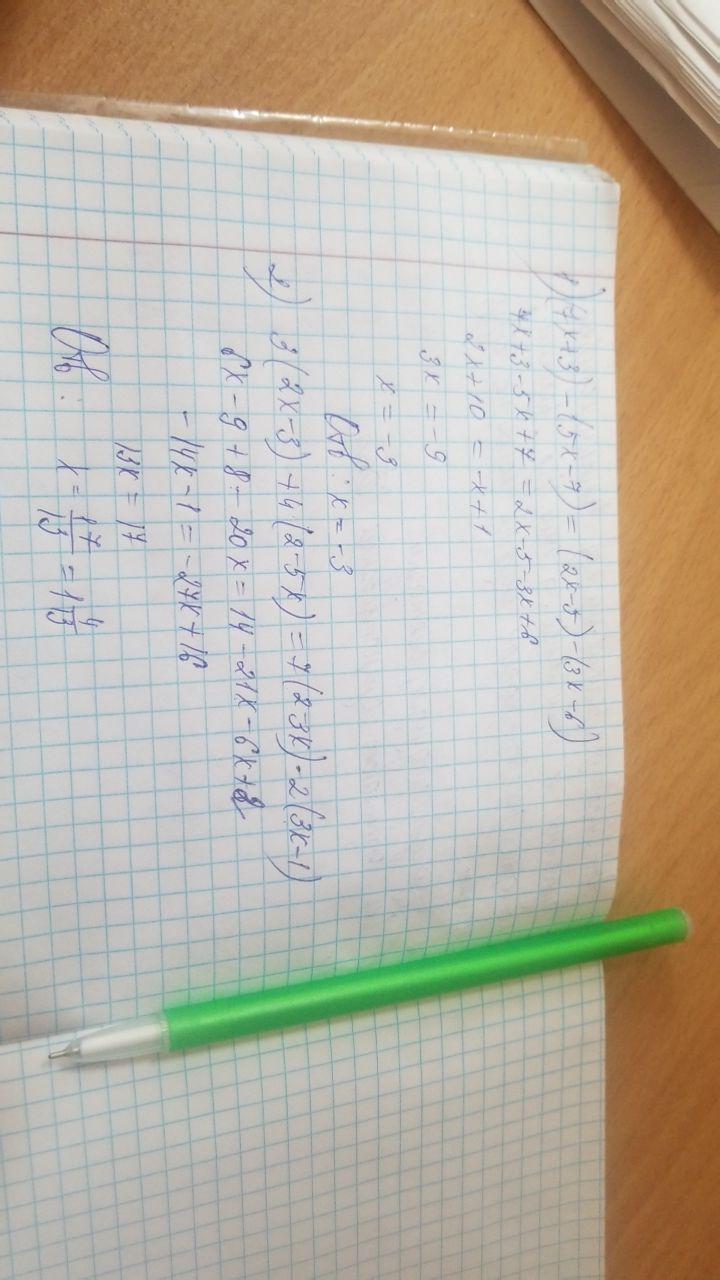 1) (4x+3) - (5x-7) = (2x-5) - (3x-6)
4x+3-5x+7 = 2x-5-3x+6
2x+10 = -x+1
3x = -9
x = -3
Отв: x = -3
2) 3(2x-3)+4(2-5x) = 7(2-3x)-2(3x-1)
6x-9+8-20x = 14-21x-6x+2
-14x-1 = -27x+16
13x = 17
Отв: x = 17/13 = 1 4/13